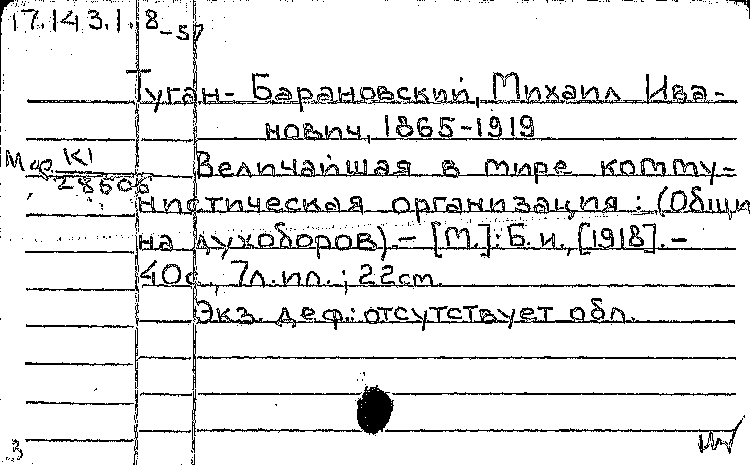 17.143.1.8-57
Туган-Барановский, Михаил Ива-
нович, 1865-1919
К1
28506
Величайшая в мире комму-
нистическая организация: (Общи
на духоборов).- [М.]: Б.и., [1918].-
40с., 7л.ил.; 22см.
Экз. деф.: отсутствует обл.
3